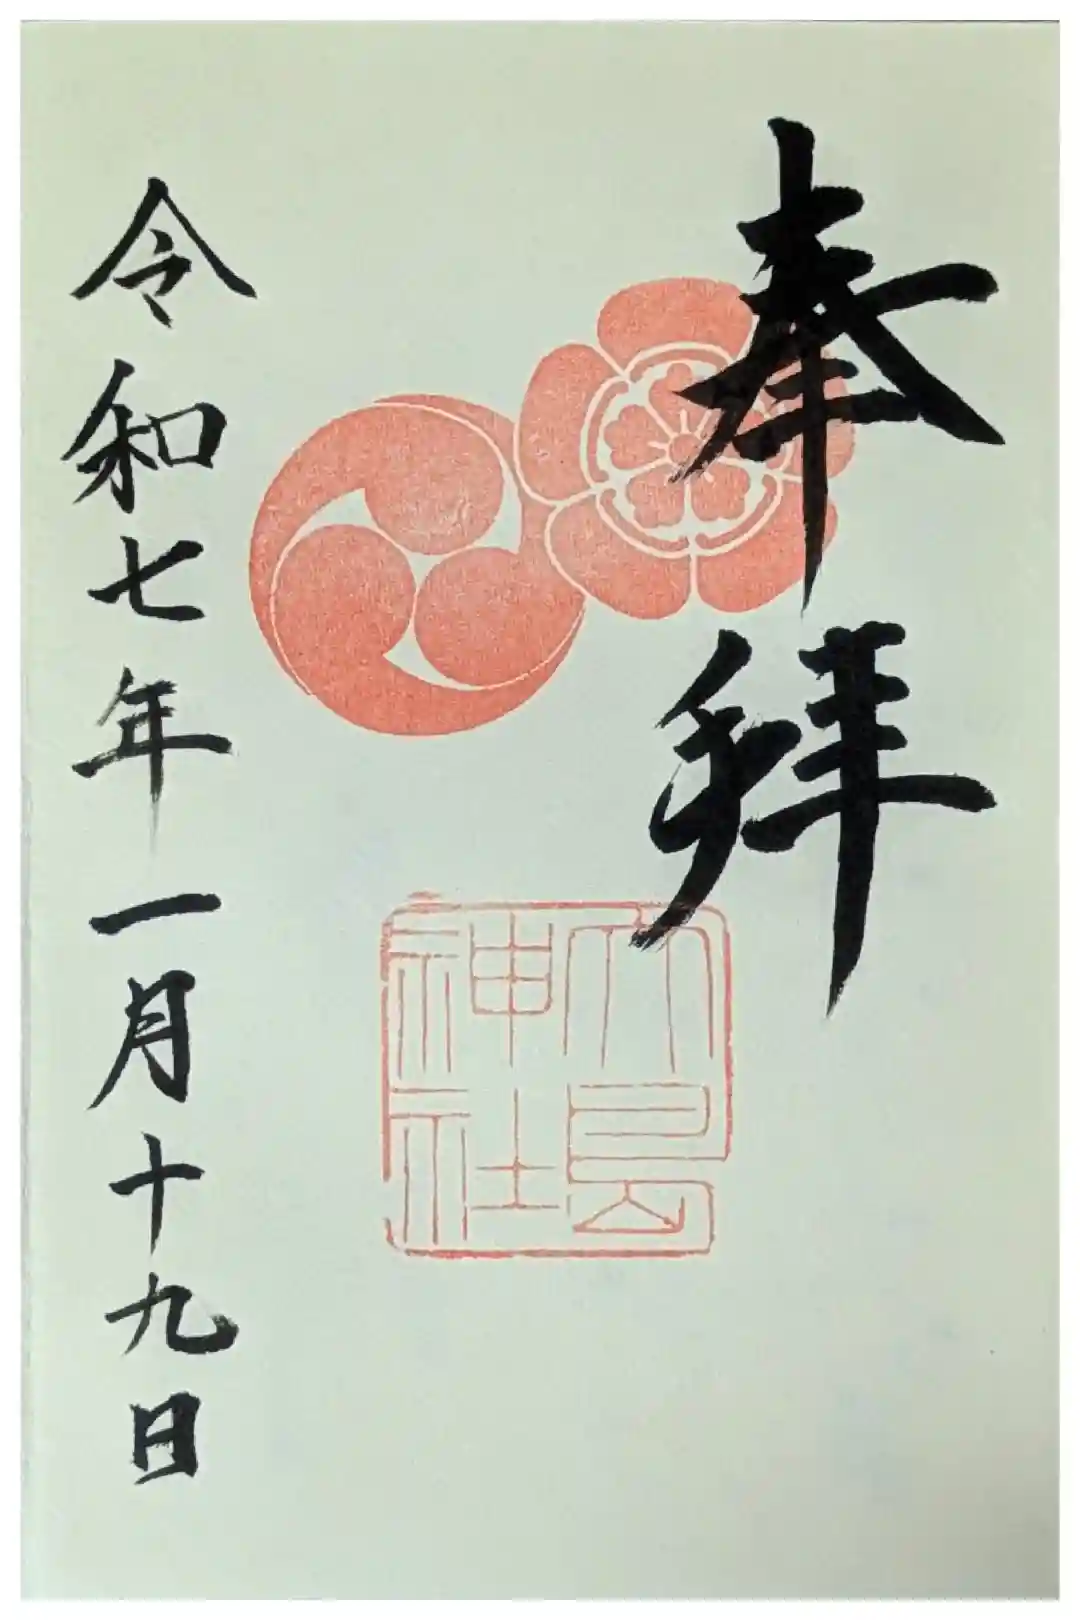 奉拝
大島
神社
令和七年一月十九日